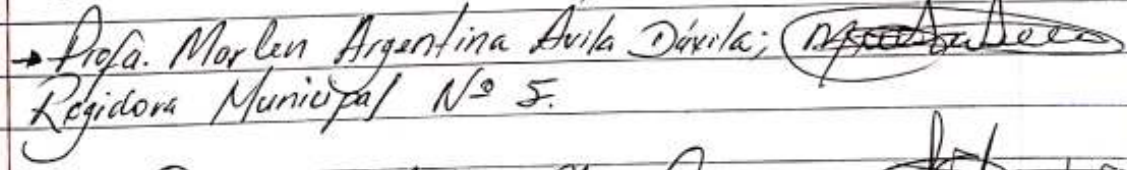 → Profa. Marlen Argentina Avila Dávila;
Regidora Municipal Nº 5.